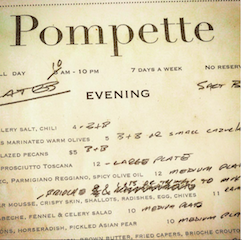 Pompette
LL DAY 10 8 AM - 10 PM 7 DAYS A WEEK NO RESERV
PLATES SALT
EVENING
LERY SALT, CHILI 2 - 3+8
S MARINATED WARM OLIVES 5 3+8 or small
LAZED PECANS $5 3-8
PROSCIUTTO TOSCANO 12 - LARGE PLATE
C, PARMIGIANO REGGIANO, SPICY OLIVE OIL 12 MEDIUM PLATE
BRIOCHE & TO
R MOUSSE, CRISPY SKIN, SHALLOTS, RADISHES, EGG, CHIVES 11
ABECHE, FENNEL & CELERY SALAD 10 MEDIUM PLATE
ONS, HORSERADISH, PICKLED ASIAN PEAR 10 MEDIUM PLATE
BROWN BUTTER, FRIED CAPERS, BRIOCHE CROUTON